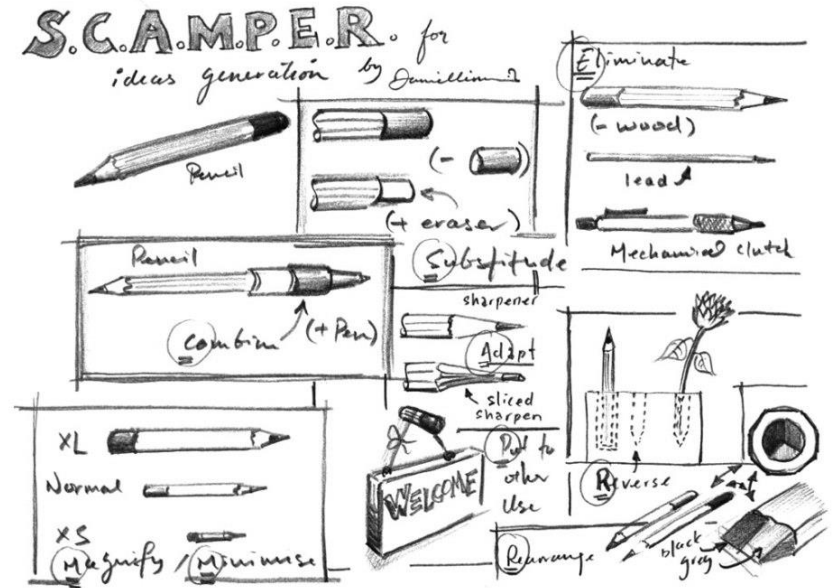 S.C.A.M.P.E.R. for
ideas generation by
Pencil
(-
)
(+ eraser)
Substitude
Eliminate
(- wood)
lead
Mechanical Clutch
Pencil
Combine (+ Pen)
sharpener
Adapt
sliced
sharpen
XL
Normal
XS
Magnify / Minimise
WELCOME
Put to
other
Use
Reverse
Rearrange
black
gray